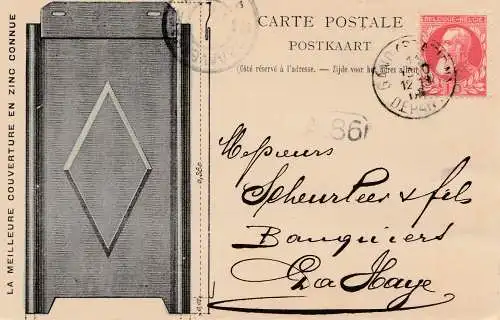 LA MEILLEURE COUVERTURE EN ZINC CONNUE
CARTE POSTALE
POSTKAART
(Côté réservé à l'adresse. — Zijde voor het adres alleen
BELGIQUE-BELGIË
12
DEPART
86
0,360
Messieurs
Scheurleer & fils
Banquiers
La Haye